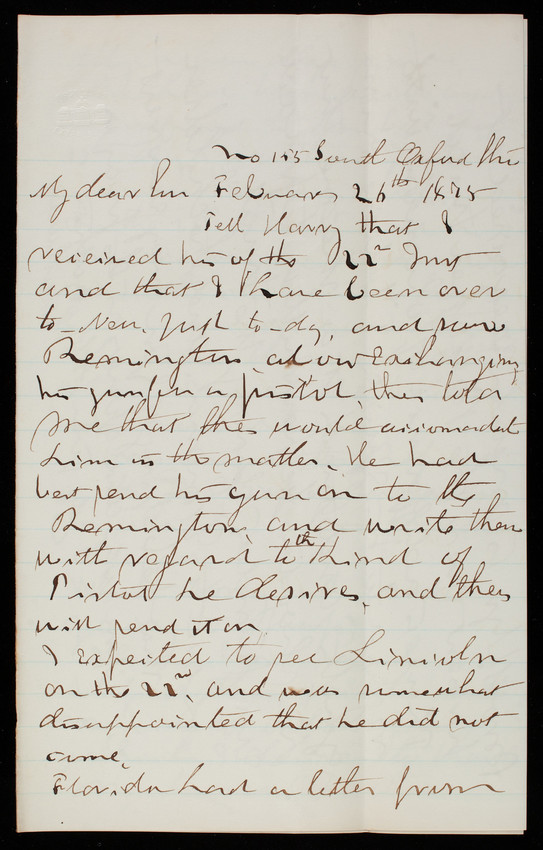 No 155 South Oxford
My dear Son February 26th 1875
Tell Harry that I
received his of the 22nd Inst
and that I have been over
to New York to-day, and saw
Remingtons, about Exchanging
his gun for a pistol, they told
me that they would accomodate
him in the matter. He had
best send his gun on to the
Remingtons and write them
with regard to th kind of
Pistol he desires, and they
will send it on.
I expected to see Lincoln
on the 22nd, and was somewhat
disappointed that he did not
come,
Florida had a letter from